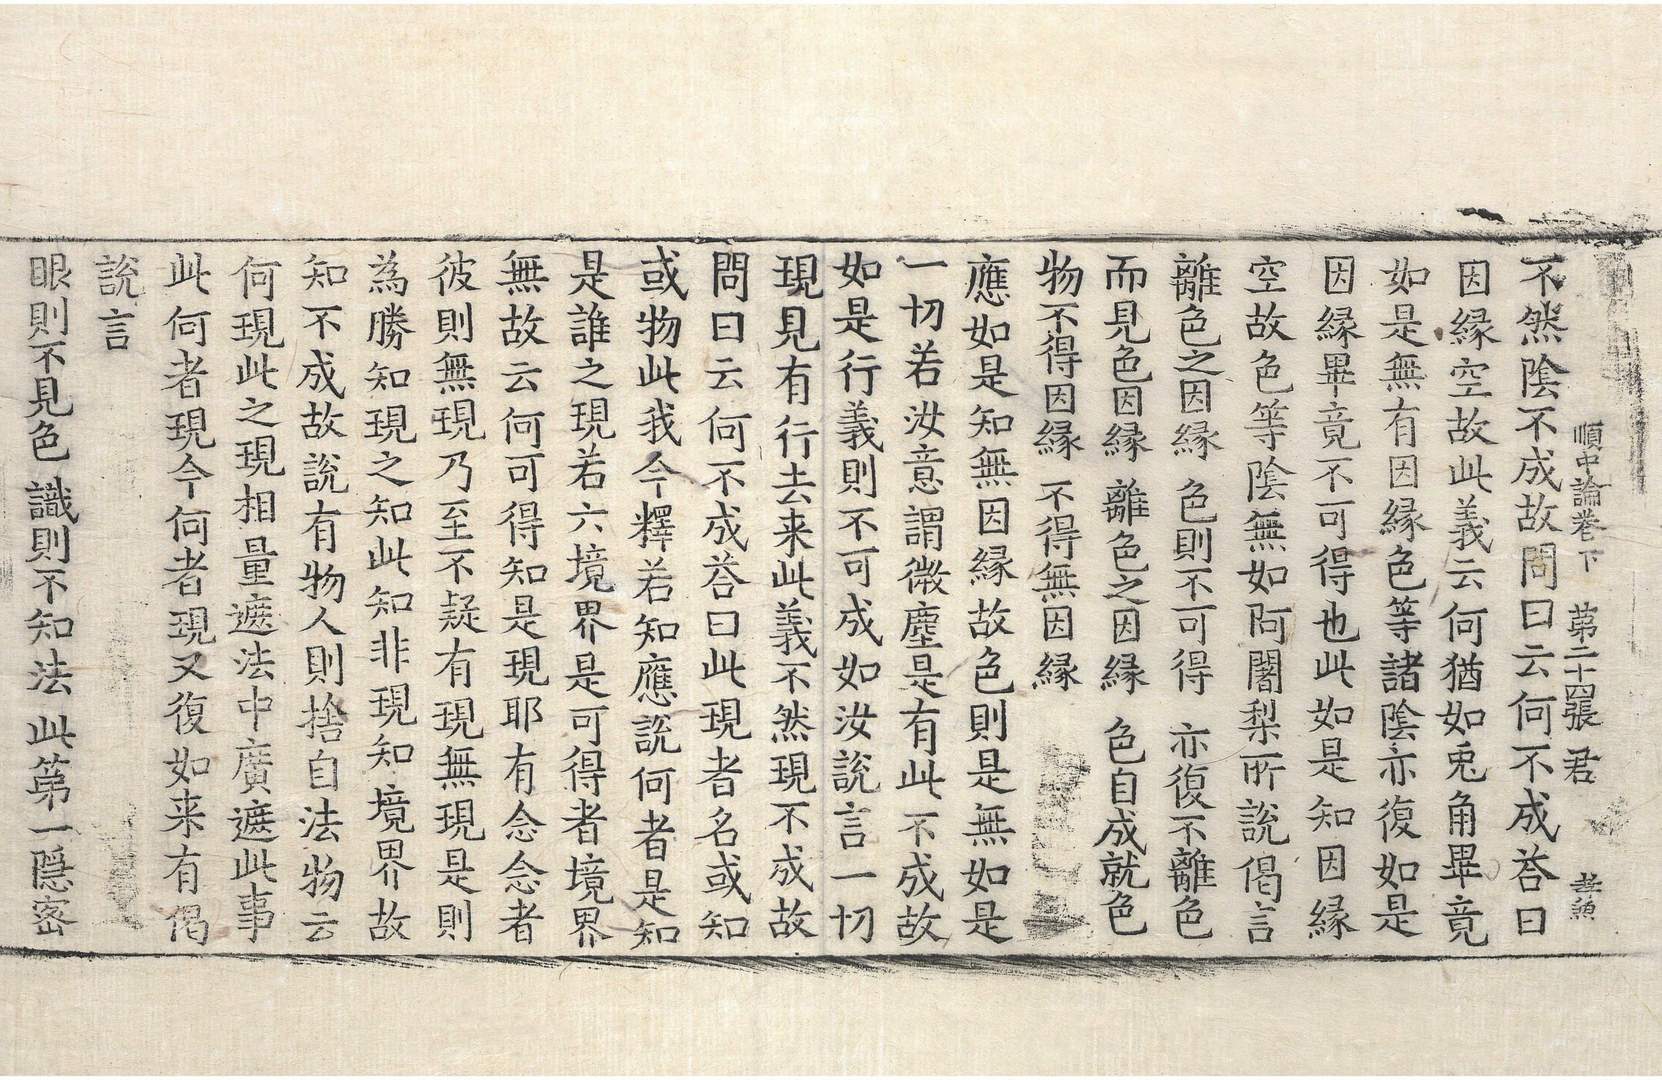 順中論卷下 第二十四張 君
不然陰不成故問曰云何不成荅曰
因緣空故此義云何猶如兎角畢竟
如是無有因緣色等諸陰亦復如是
因緣畢竟不可得也此如是知因緣
空故色等陰無如阿闍梨所說偈言
離色之因緣 色則不可得 亦復不離色
而見色因緣 離色之因緣 色自成就色
物不得因緣 不得無因緣
應如是知無因緣故色則是無如是
一切若汝意謂微塵是有此不成故
如是行義則不可成如汝說言一切
現見有行去来此義不然現不成故
問曰云何不成荅曰此現者名或知
或物此我今釋若知應說何者是知
是誰之現若六境界是可得者境界
無故云何可得知是現耶有念念者
彼則無現乃至不疑有現無現是則
為勝知現之知此知非現知境界故
知不成故說有物人則捨自法物云
何現此之現相量遮法中廣遮此事
此何者現今何者現又復如来有偈
說言
眼則不見色 識則不知法 此第一隱宻